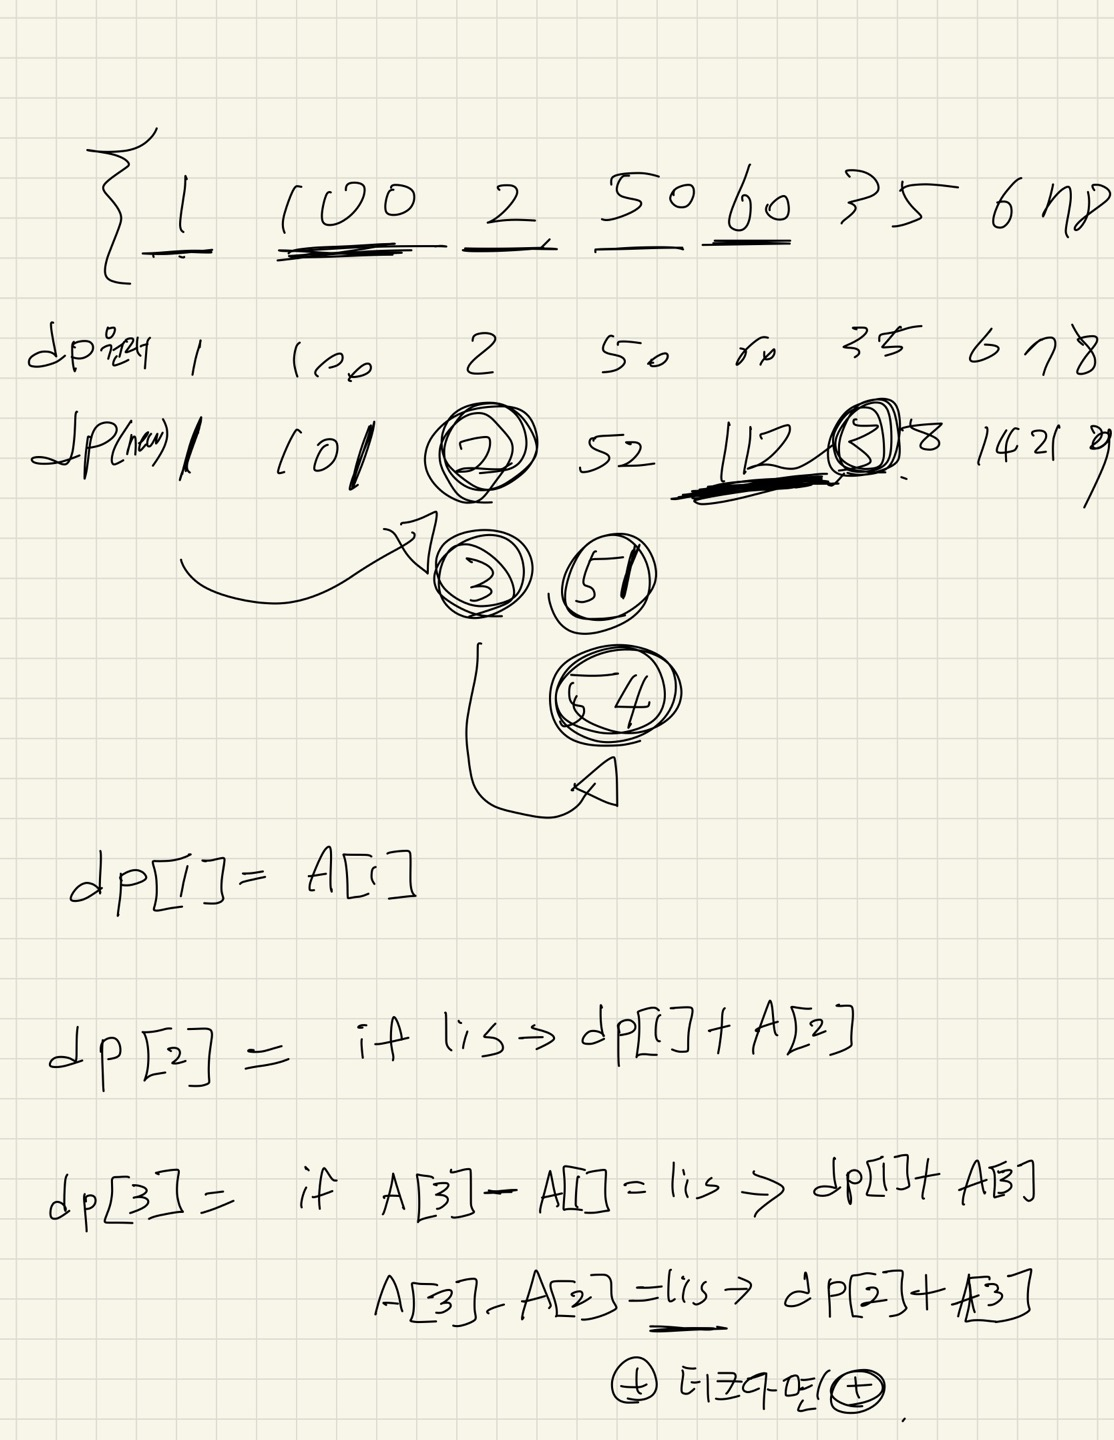 { 1 100 2 50 60 35 6 7 8
dp원래 1 100 2 50 60 35 6 7 8
dp(new) 1 101 2 52 112 38 14 21 29
3 51
54
dp[1] = A[1]
dp[2] = if lis → dp[1] + A[2]
dp[3] = if A[3] - A[1] = lis → dp[1] + A[3]
A[3] - A[2] = lis → dp[2] + A[3]
+ 더크다면 +